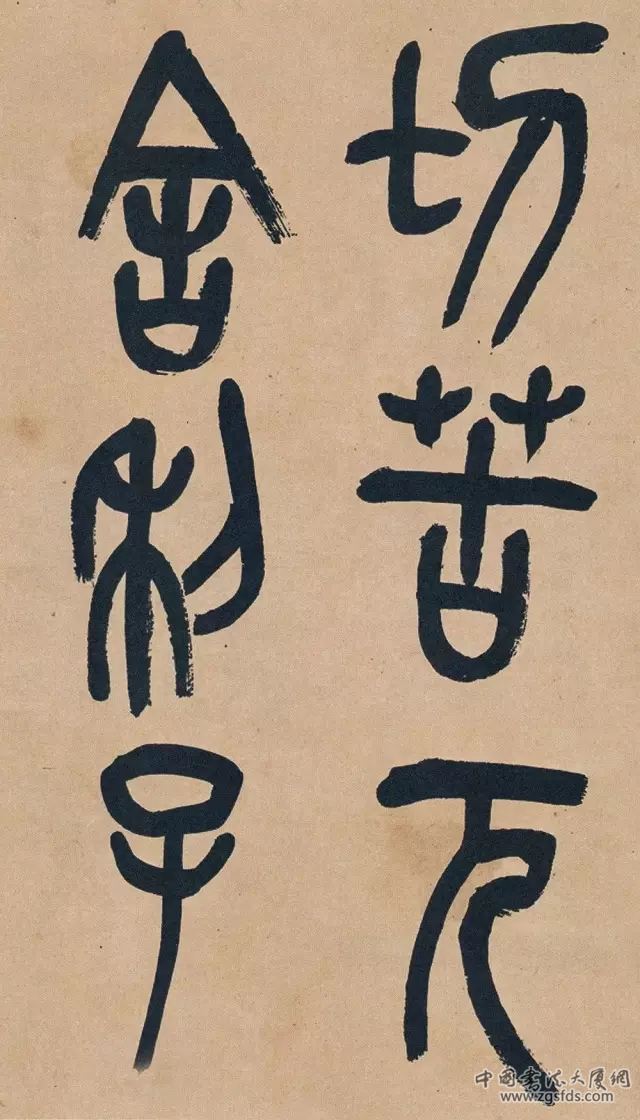 切苦厄
舍利子
中國书法大厦網
www.zgsfds.com